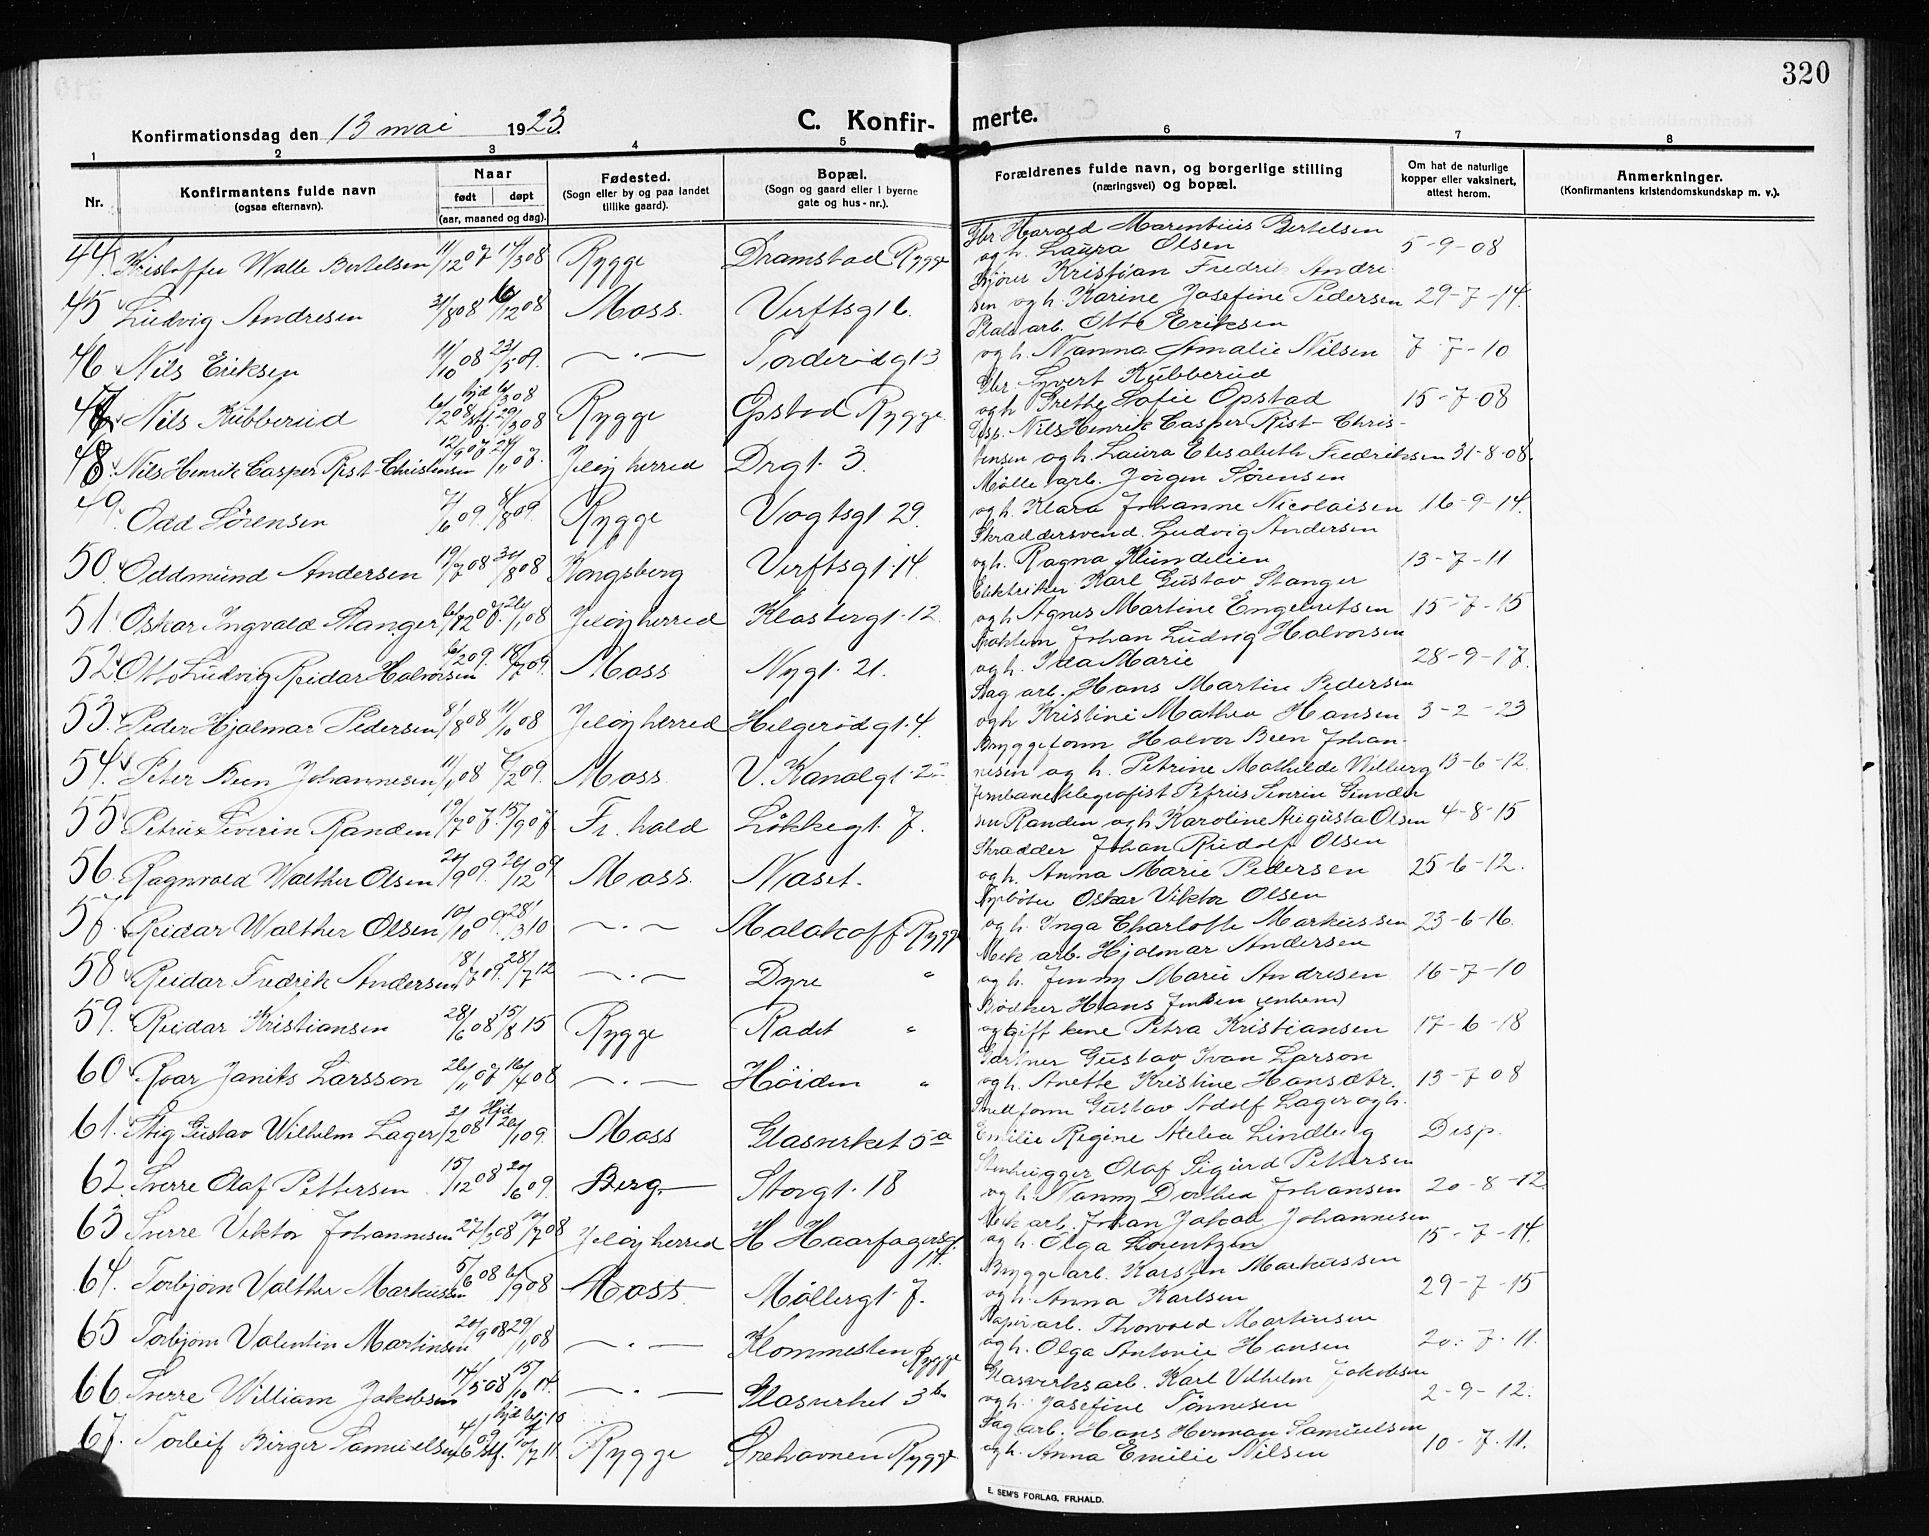 320
Konfirmationsdag den 13 mai 1923.
C. Konfir- merte.
1 2 3 4 5 6 7 8
Nr.
Konfirmantens fulde navn
(ogsaa efternavn).
Naar
født døpt
(aar, maaned og dag).
Fødested.
(Sogn eller by og paa landet
tillike gaard).
Bopæl.
(Sogn og gaard eller i byerne
gate og hus-nr.).
Forældrenes fulde navn, og borgerlige stilling
(næringsvei) og bopæl.
Om hat de naturlige
kopper eller vaksinert,
attest herom.
Anmerkninger.
(Konfirmantens kristendomskundskap m. v.).
Gbr Harald Marentius Bertelsen
44. Kristoffer Walle Bertelsen 11/12 07 17/3 08 Rygge Dramstad Rygge og h. Laura Olsen 5-9-08
Kjører Kristian Fredrik Andre-
45 Ludvig Andresen 31/8 08 16/12 08 Moss. Verftsgt 6. sen og h. Karine Josefine Pedersen 29-7-14.
Plade arb. Otto Eriksen
46 Nils Eriksen 11/10 08 23/5 09. —·— Torderødgt 3 og h. Nanna Amalie Nilsen 7-7-10
Gbr Syvert Kubberud
47 Nils Kubberud 6/2 08 hjd 6/3 08 stf. 29/3 08 Rygge Opstad Rygge og h Grethe Sofie Opstad 15-7-08
Nils Henrik Casper Rist-Chris-
48. Nils Henrik Casper Rist-Christensen 12/9 07 24/11 07. Jeløy herred Drgt. 3. tensen og h. Laura Elisabeth Fredriksen 31-8-08.
Mølle arb. Jørgen Sørensen
49. Odd Sørensen 7/6 09. 8/8 09. Rygge Vogtsgt 29. og h. Klara Johanne Nicolaisen 16-9-14.
Skraddersvend. Ludvig Andersen
50. Oddmund Andersen 19/7 08 30/8 08 Kongsberg Verftsgt. 14. og h. Ragna 13-7-11
Elektriker Karl Gustav Stanger
51. Oskar Ingvald Stanger 6/12 07. 26/1 08 Jeløy herred Klostergt. 12. og h Agnes Martine Engebretsen 15-7-15
Johan Ludvig Halvorsen
52. Otto Ludvig Reidar Halvorsen 6/2 09. 18/7 09. Moss Nygt. 21. og h. Ida Marie 28-9-17.
Sag arb. Hans Martin Pedersen
53. Peder Hjalmar Pedersen 8/8 08 11/10 08 Jeløy herred Helgerødgt. 4. og h Kristine Mathea Hansen 3-2-23
Bryggeform Halvor Been Johan-
54. Peter Been Johannesen 11/11 08 7/2 09. Moss. V. Kanalgt. 2 nesen og h. Petrine Mathilde Wilberg 13-6-12.
Jernbanetelegrafist Petrus Severin
55. Petrus Severin Randen 19/7 07. 15/9 07 Fr. hald Løkkegt. 7. Randen og h Karoline Augusta Olsen 4-8-15
Skrædder Johan Rudolf Olsen
56. Ragnvald Walther Olsen 20/9 09. 26/12 09. Moss. Naset. og h. Anna Marie Pedersen 25-6-12.
Fyrbøter Oskar Viktor Olsen
57. Reidar Walther Olsen 10/10 09. 28/3 10 —·— Malakoff Rygge og h. Inga Charlotte Markussen 23-6-16.
Mek arb. Hjalmar Andersen
58 Reidar Fredrik Andersen 18/7 09. 28/7 12 —·— Dyre " og h. Jenny Marie Andresen 16-7-10
Bødker Hans Jensen (enkem)
59. Reidar Kristiansen 28/6 08 15/8 15 Rygge Radet " og ugift kone Petra Kristiansen 17-6-18
Gartner Gustav Ivan Larson
60. Roar Janits Larsson 26/11 07 16/4 08 —·— Høiden " og h. Anette Kristine Hansdtr. 13-7-08
Smedform Gustav Adolf Lager og h.
61. Stig Gustav Wilhelm Lager 3/2 08 Hjd 26/1 09. Moss Glasverket 5a Emilie Regine Alelea Lindberg Disp.
Stenhugger Olaf Sigurd Pettersen
62. Sverre Olaf Pettersen 15/12 08 20/6 09. Berg. Storgt. 18 og h Nanny Dorthea Johansen 20-8-12.
Mek arb. Johan Jakob Johannesen
63 Sverre Viktor Johannesen 27/3 08 12/7 08 Jeløy herred H Haarfagersgt. 14. og h. Olga Lorentzen 15-7-14.
Bryggearb. Karsten Markussen
64. Torbjørn Valther Markussen 5/6 08 6/9 08 Moss. Møllergt. 7. og h. Anna Karlsen 29-7-15
Papirarb. Thorvald Martinsen
65 Torbjørn Valentin Martinsen 20/9 08 29/11 08 —·— Klommesten Rygge og h. Olga Antonie Hansen 20-7-11.
Glasverksarb. Karl Vilhelm Jakobsen
66. Sverre William Jakobsen 14/5 08 15/10 14. —·— Glasverket 3b og h. Josefine Tønnesen 2-9-12.
Sag arb. Hans Herman Samuelsen
67. Torleif Birger Samuelsen 4/6 09 hjd stf. 10/7 11 Rygge Ørehavnen Rygge og h. Anna Emilie Nilsen 10-7-11.
E. SEM'S FORLAG, FR.HALD.